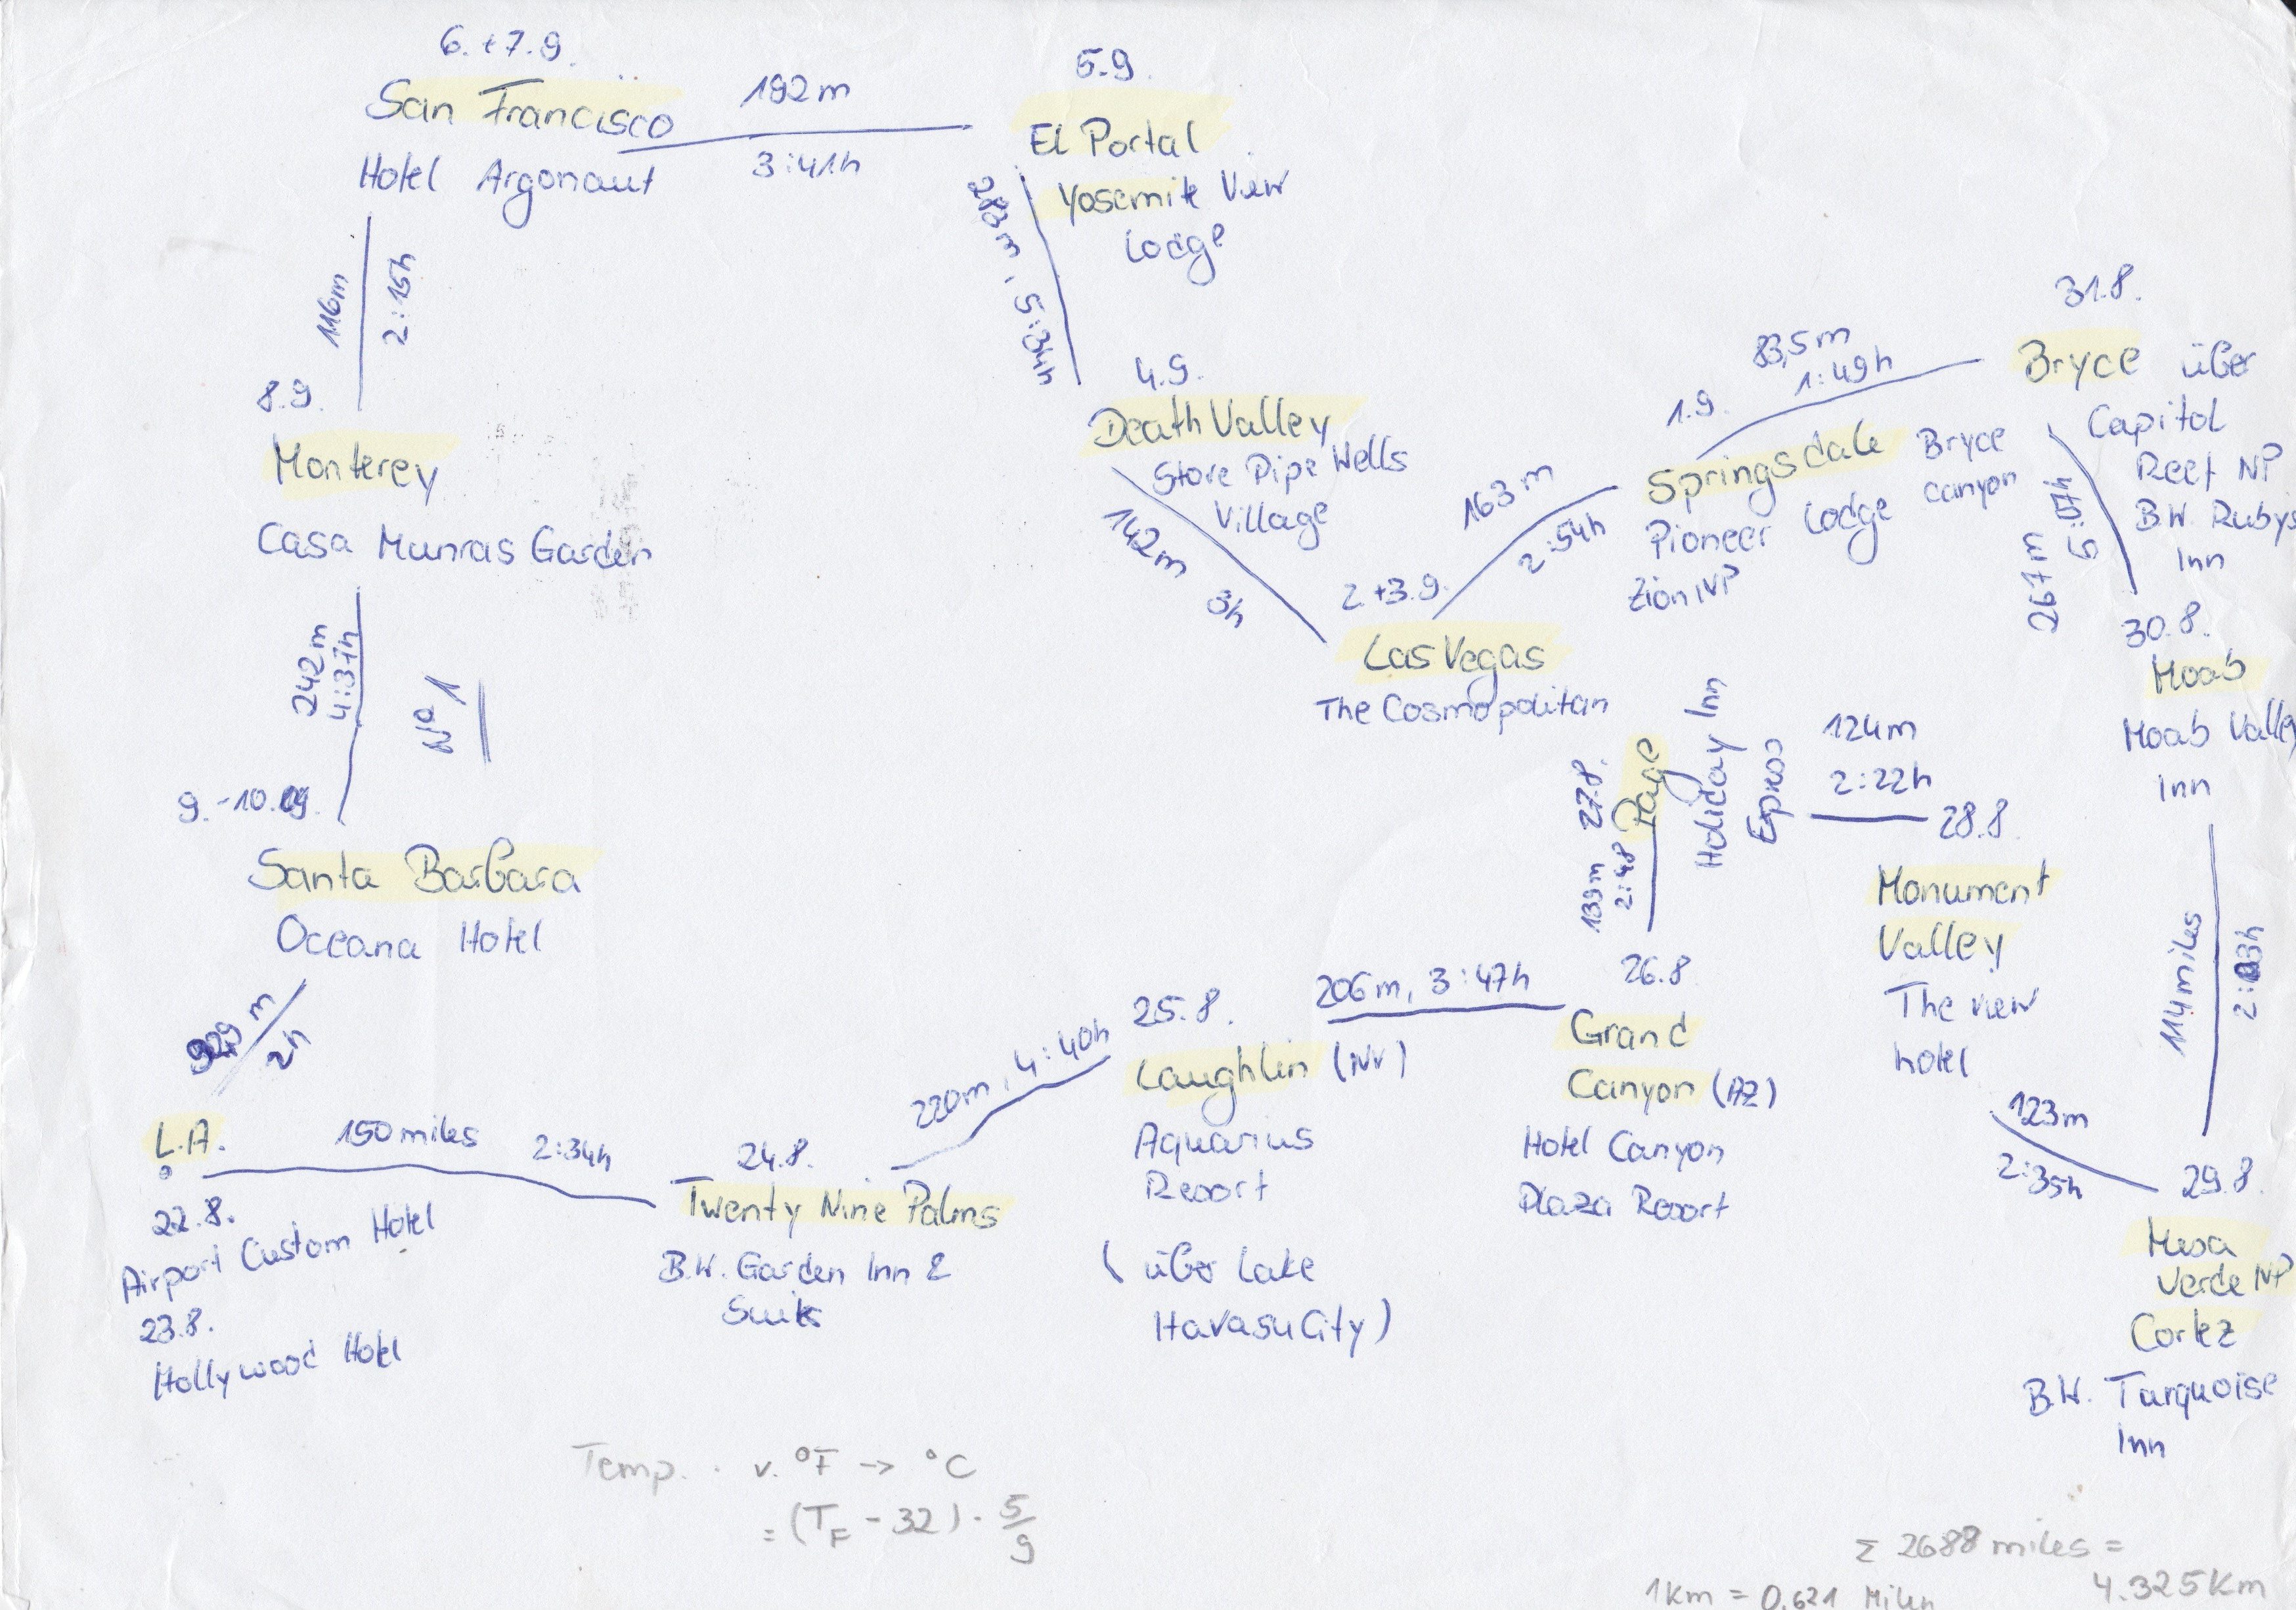 6. + 7.9.
San Francisco
Hotel Argonaut
192m
3:41h
5.9.
El Portal
Yosemite View
Lodge
5:34h
116m
2:15h
8.9.
Monterey
Casa Munras Garden
242m
4:37h
Nº 1
9.-10.9.
Santa Barbara
Oceana Hotel
m
2h
L.A.
22.8.
Airport Custom Hotel
23.8.
Hollywood Hotel
150 miles
2:34h
24.8.
Twenty Nine Palms
B.W. Garden Inn &
Suites
220m, 4:40h
25.8.
Laughlin (NV)
Aquarius
Resort
( über Lake
Havasu City )
206m, 3:47h
26.8
Grand
Canyon (AZ)
Hotel Canyon
Plaza Resort
139m
2:48
27.8.
Page
Holiday Inn
Express
124m
2:22h
28.8.
Monument
Valley
The view
hotel
123m
2:35h
29.8.
Mesa
Verde NP
Cortez
B.W. Turquoise
Inn
114 miles
2:03h
30.8.
Moab
Moab Valley
Inn
267m
5:07h
31.8.
Bryce über
Capitol
Reef NP
B.W. Rubys
Inn
83,5m
1:49h
1.9.
Springsdale Bryce
canyon
Pioneer Lodge
Zion NP
163m
2:54h
2.+3.9.
Las Vegas
The Cosmopolitan
142m
3h
4.9.
Death Valley
Store Pipe Wells
Village
Temp. v. °F -> °C
= (TF - 32) · 5/9
Σ 2688 miles =
4.325 Km
1Km = 0,621 Milen